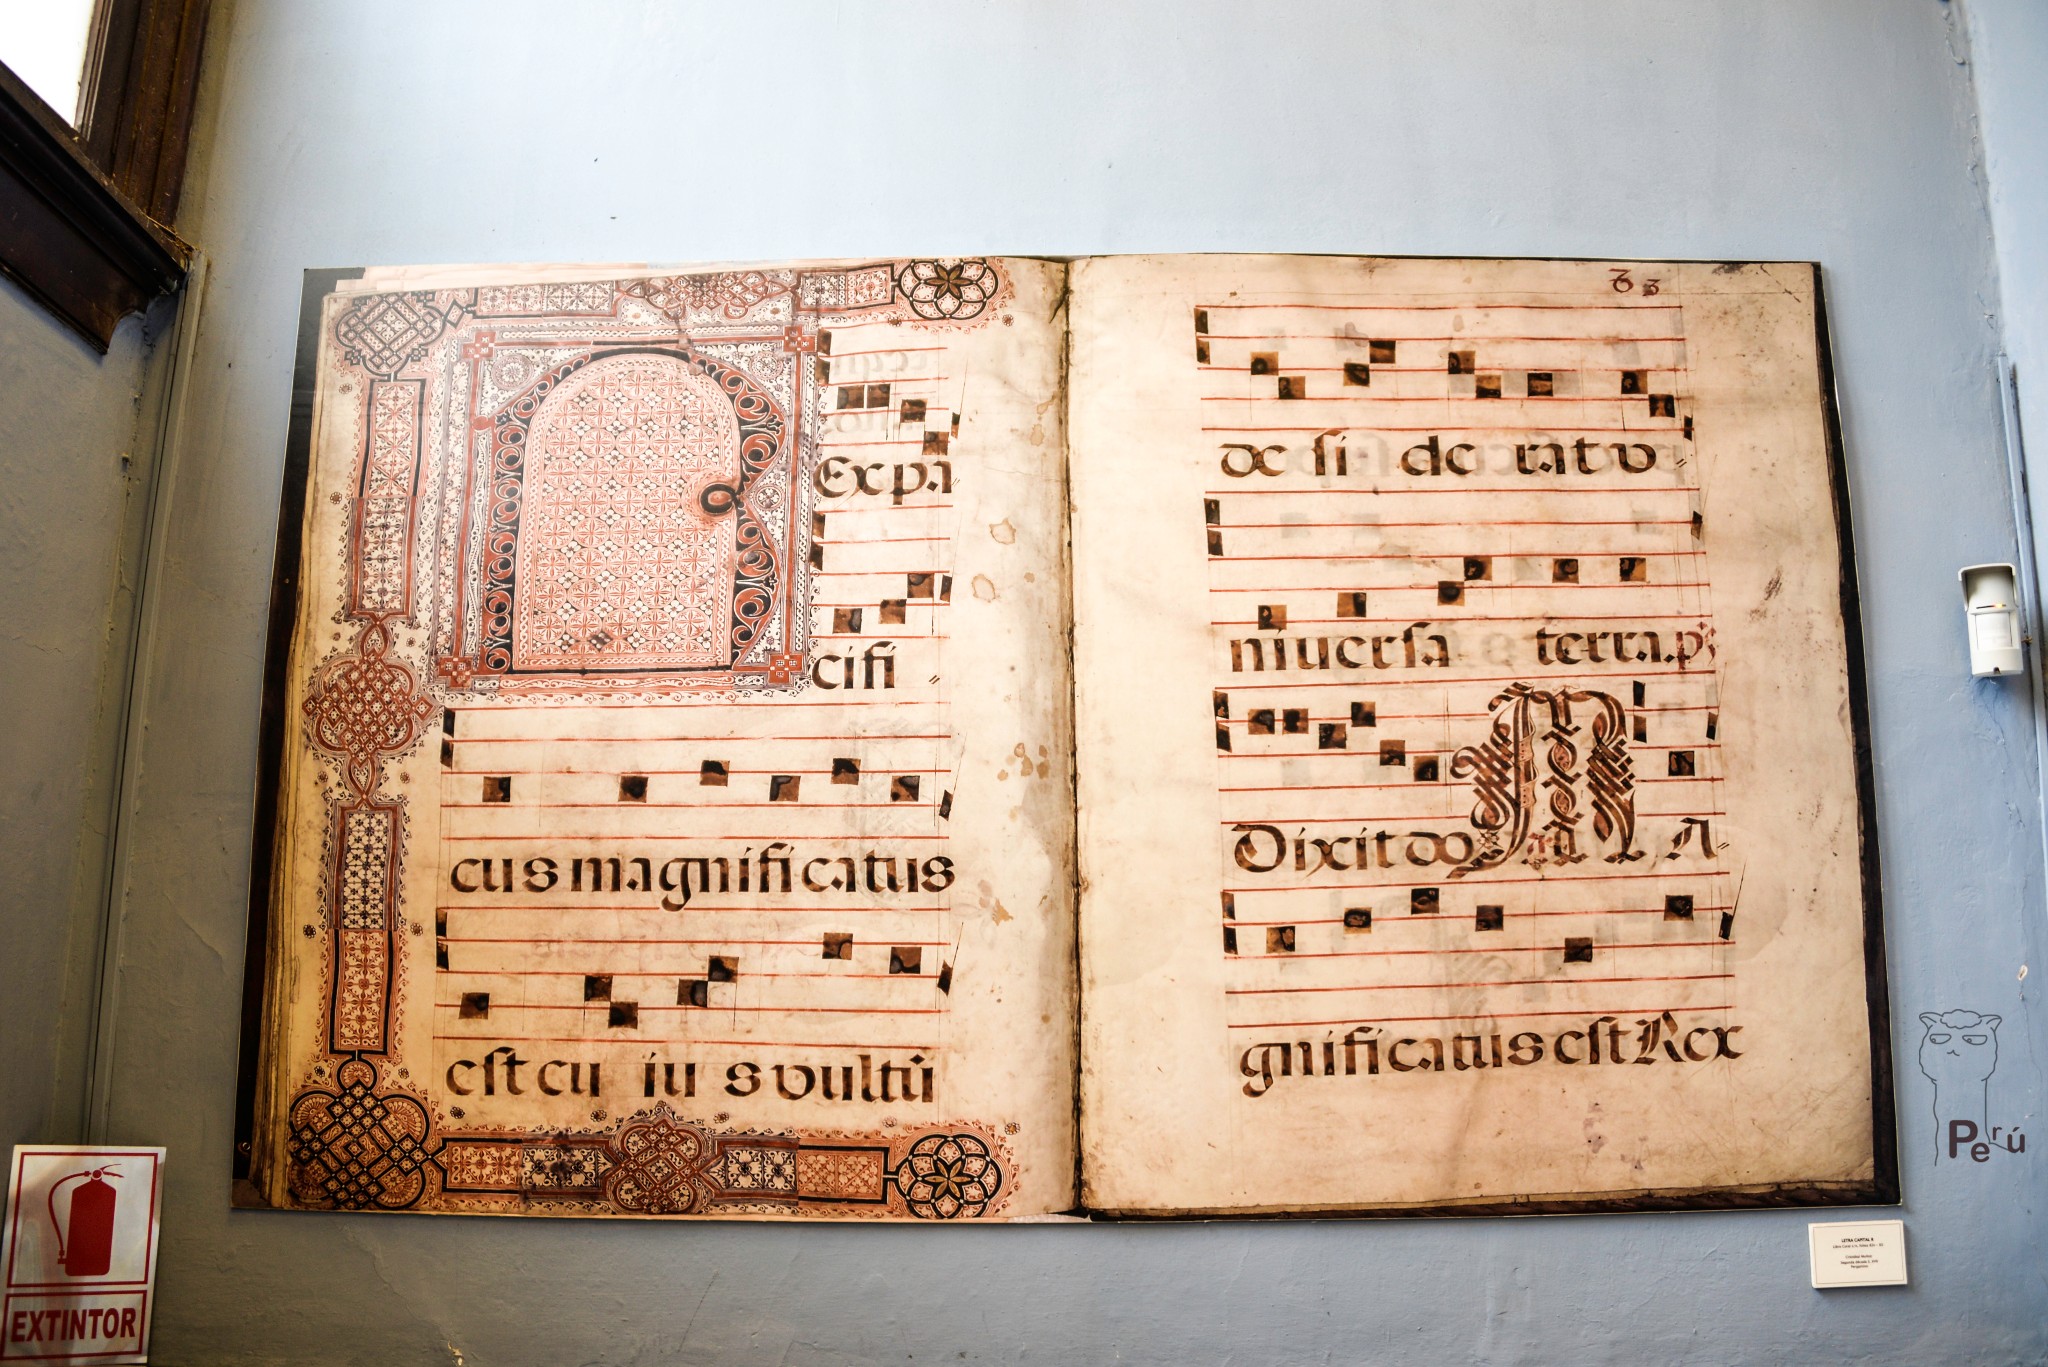 REx pa
cifi
cus magnificatus
est cu iu s vultū
63
de si de rat v
niuersa terra. ps
Dixit do M A
gnificatus est Rex
EXTINTOR
LETRA CAPITAL R
Perú